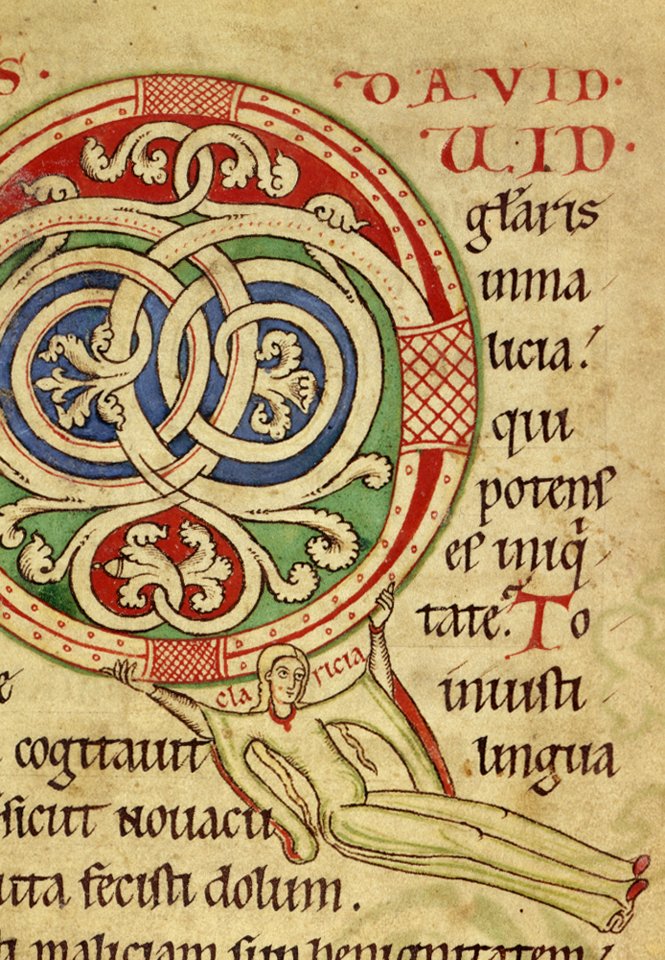 S. DAVID.
UID.
gl̄aris
inma
licia!
qui
potens
es iniq̇
tate. To
claricia
e iniusti
cogitauit lingua
sicut nouacu
uta fecisti dolum.
maliciam sup benignitatem